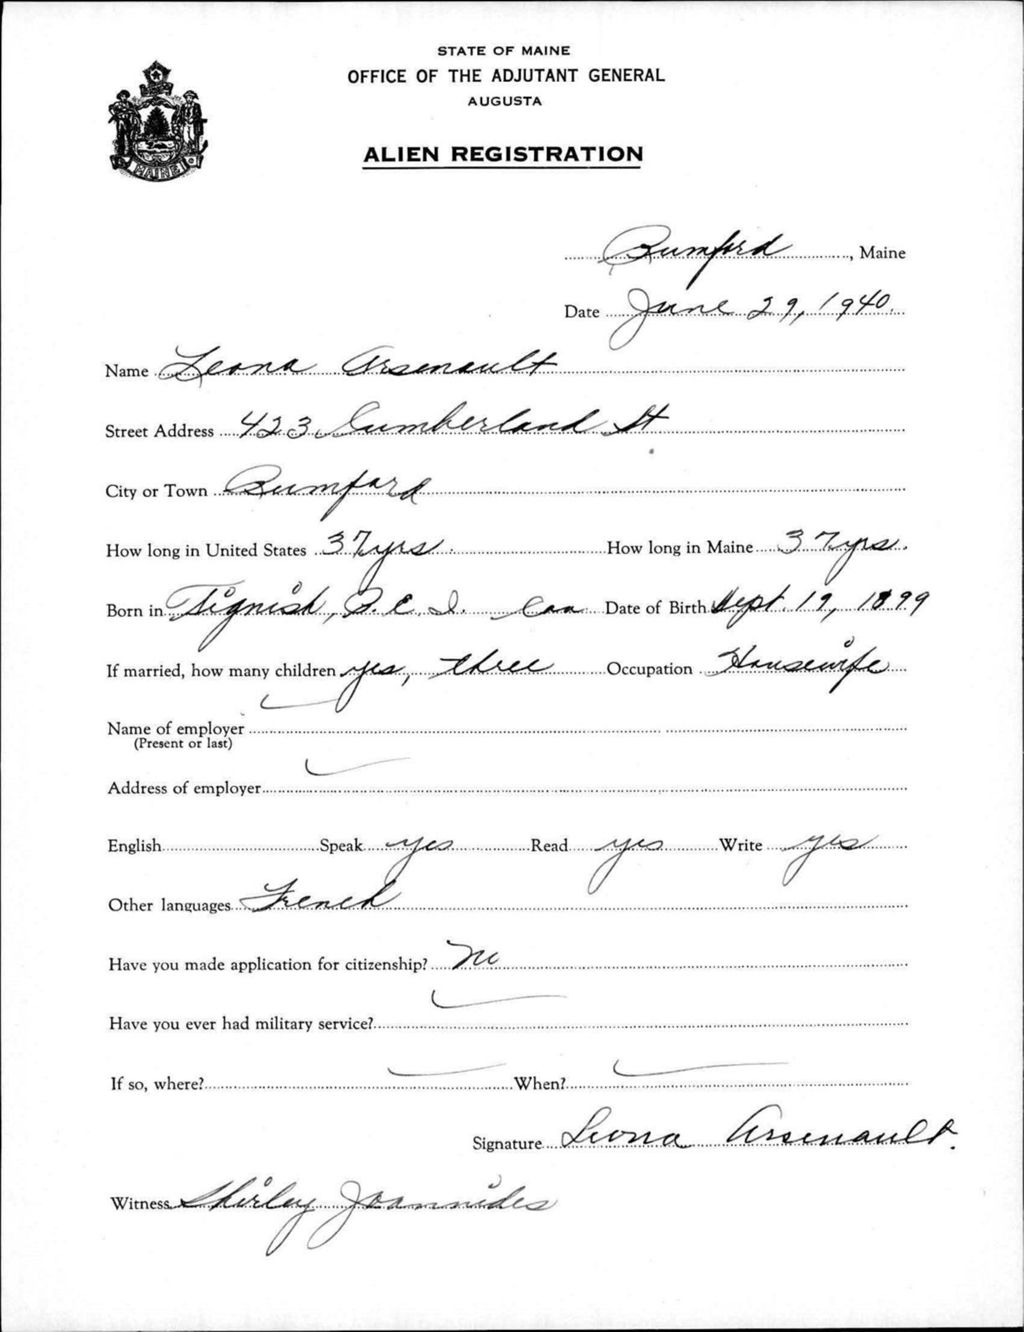 STATE OF MAINE
OFFICE OF THE ADJUTANT GENERAL
AUGUSTA
ALIEN REGISTRATION
MAINE
Rumford, Maine
Date June 29, 1940.
Name Leona Arsenault
Street Address 423 Cumberland St
City or Town Rumford
How long in United States 37 yrs. How long in Maine 37 yrs.
Born in Tignish, P. E. I. Can Date of Birth Sept. 19, 1899
If married, how many children yes, three Occupation Housewife
Name of employer
(Present or last)
Address of employer
English Speak yes Read yes Write yes
Other languages French
Have you made application for citizenship? No
Have you ever had military service?
If so, where? When?
Signature Leona Arsenault.
Witness Shirley Joannides